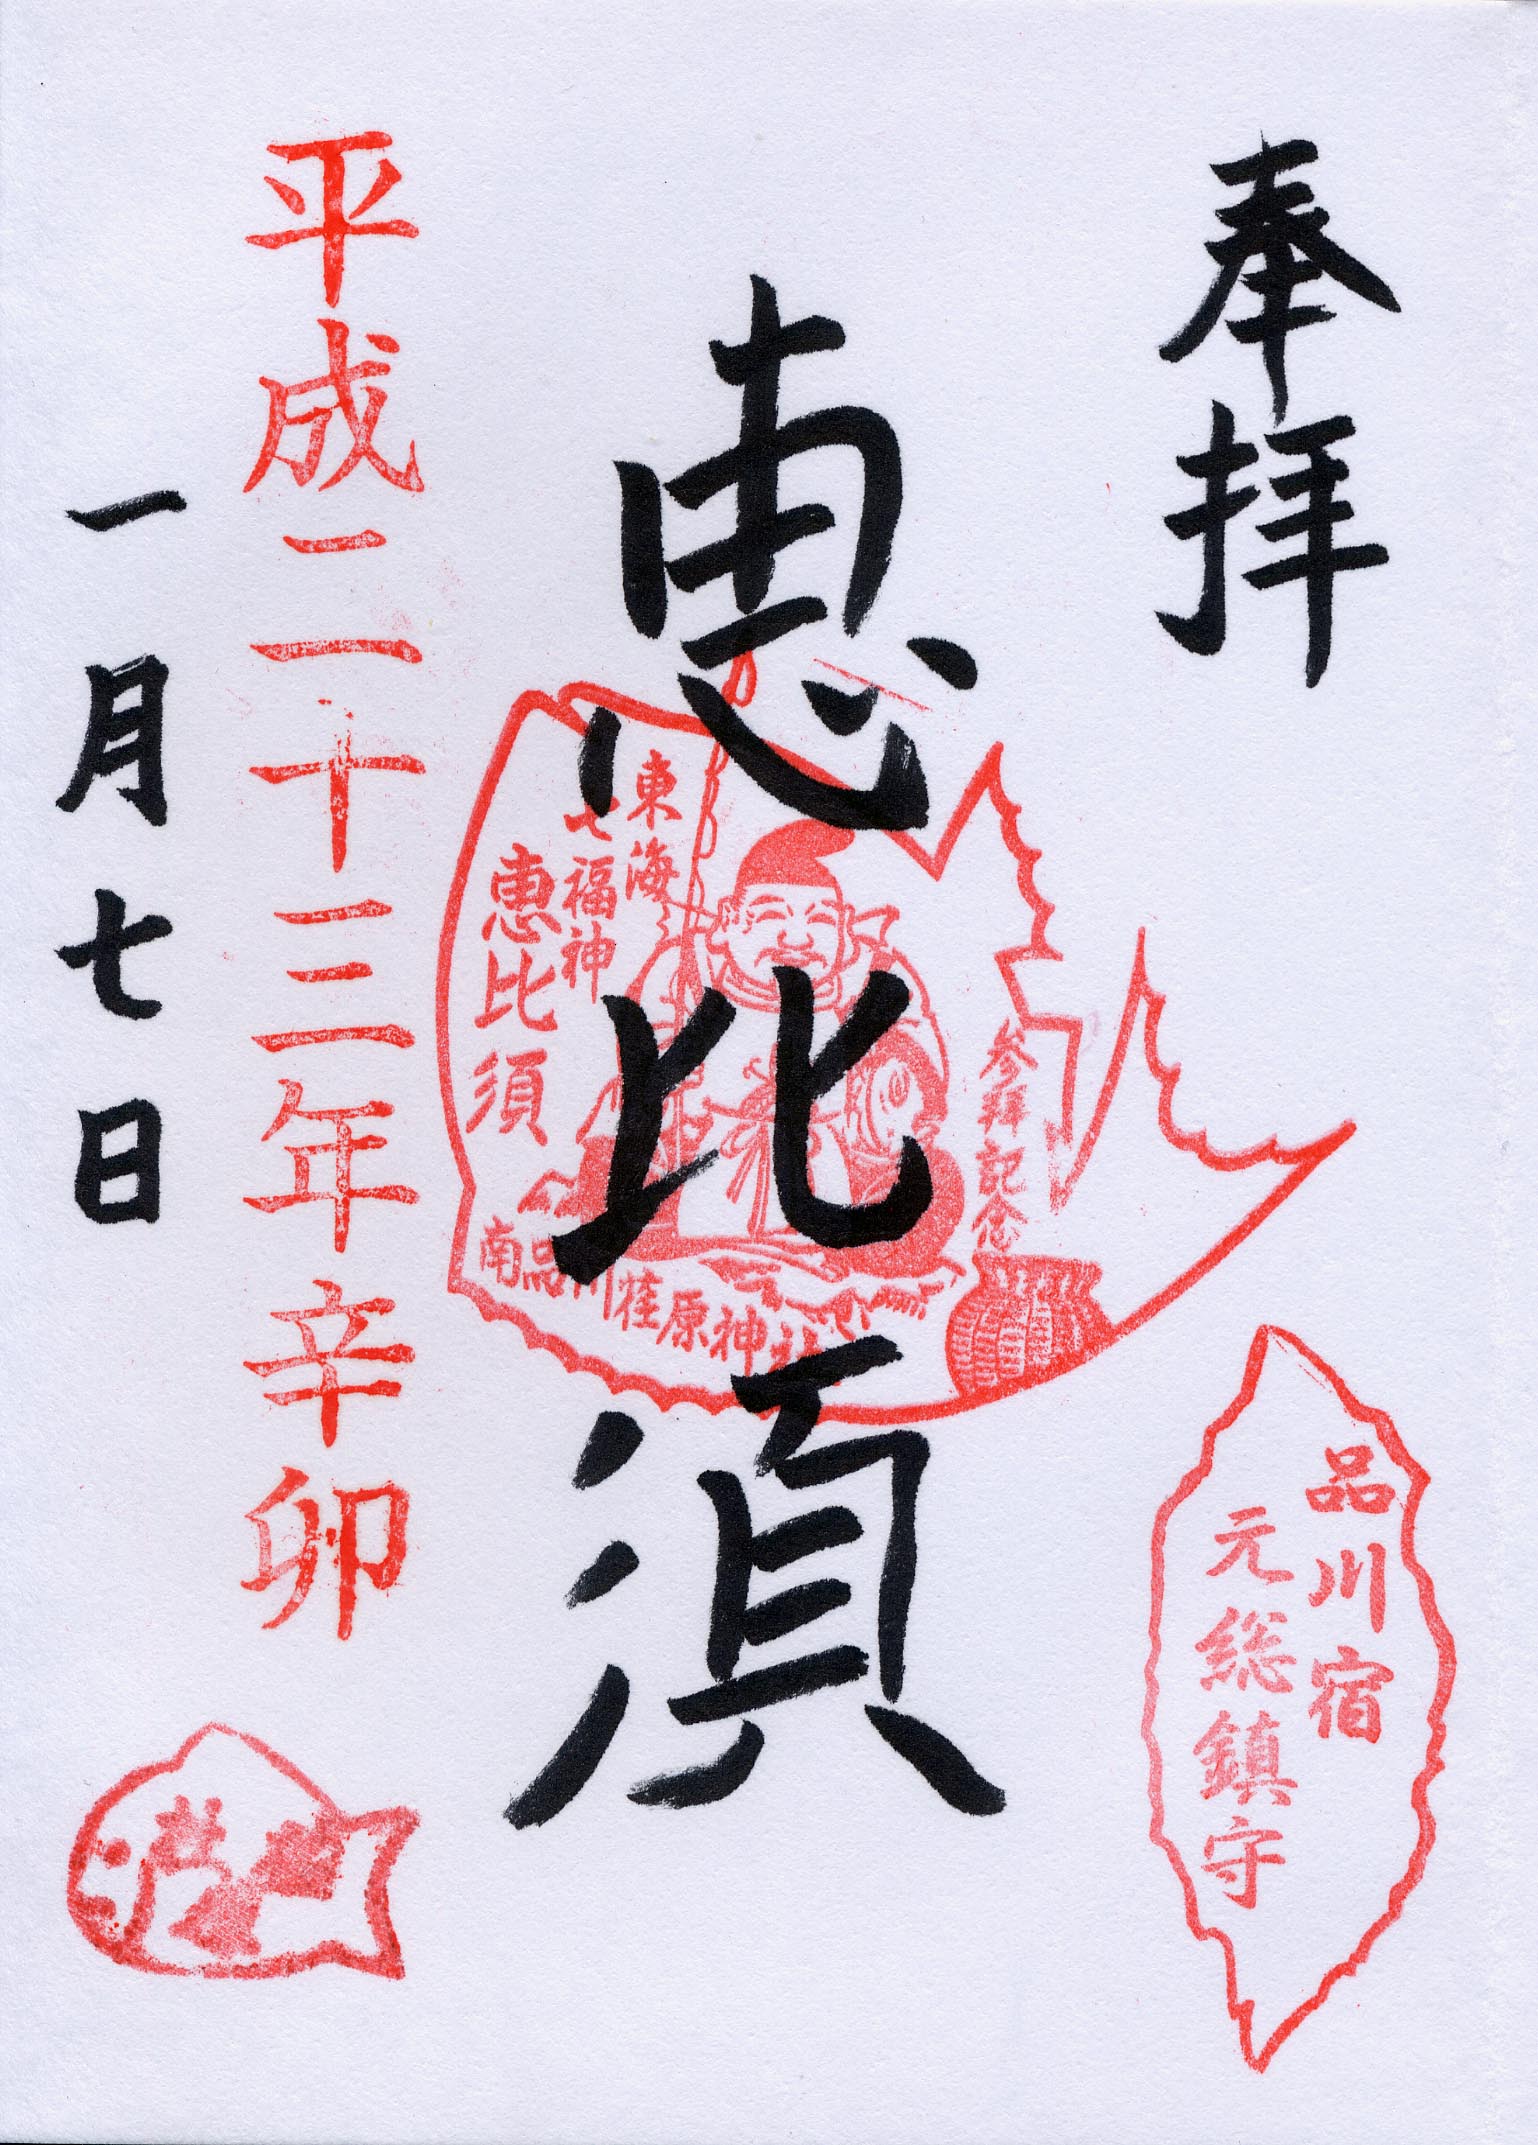 奉拝
品川宿
元総鎮守
恵比須
参拝記念
東海
七福神
恵比須
南品川荏原神社
平成二十三年辛卯
一月七日